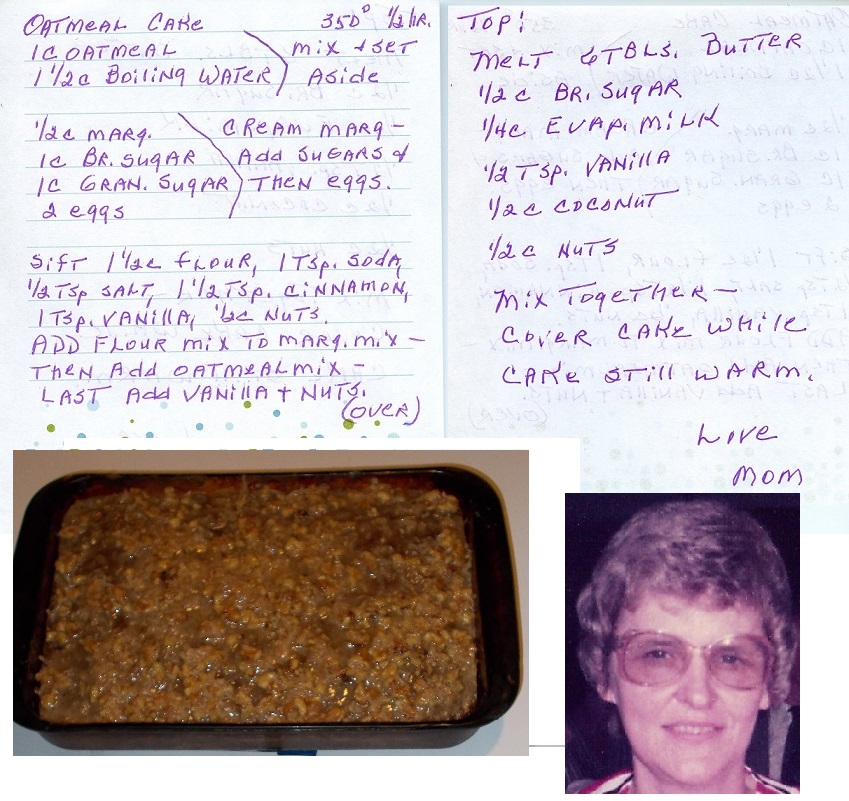 OATMEAL CAKE 350° 1/2 HR.
1C OATMEAL mix + SET
1 1/2c Boiling WATER Aside
1/2c marg. CREAM MARG -
1c BR. SUGAR Add SUGARS &
1C GRAN. SUGAR THEN eggs.
2 eggs
SifT 1 1/2c fLOUR, 1 TSp. SodA,
1/2 TSp SALT, 1 1/2 TSp. CiNNAMON,
1 TSp. VANillA, 1/2c NuTS.
ADD FLOUR mix TO MARg. mix -
THEN Add OATMEAL mix -
LAST Add VANillA + NuTS.
(OVER)
TOP:
MELT 6 TBLS. BUTTER
1/2 c BR. SUgAR
1/4c EVAP. MiLK
1/2 TSp. VANillA
1/2 c COCONUT
1/2 c NuTS
Mix TOgeTHER -
COVER CAKE WHiLe
CAKE STill WARM.
Love
MOM